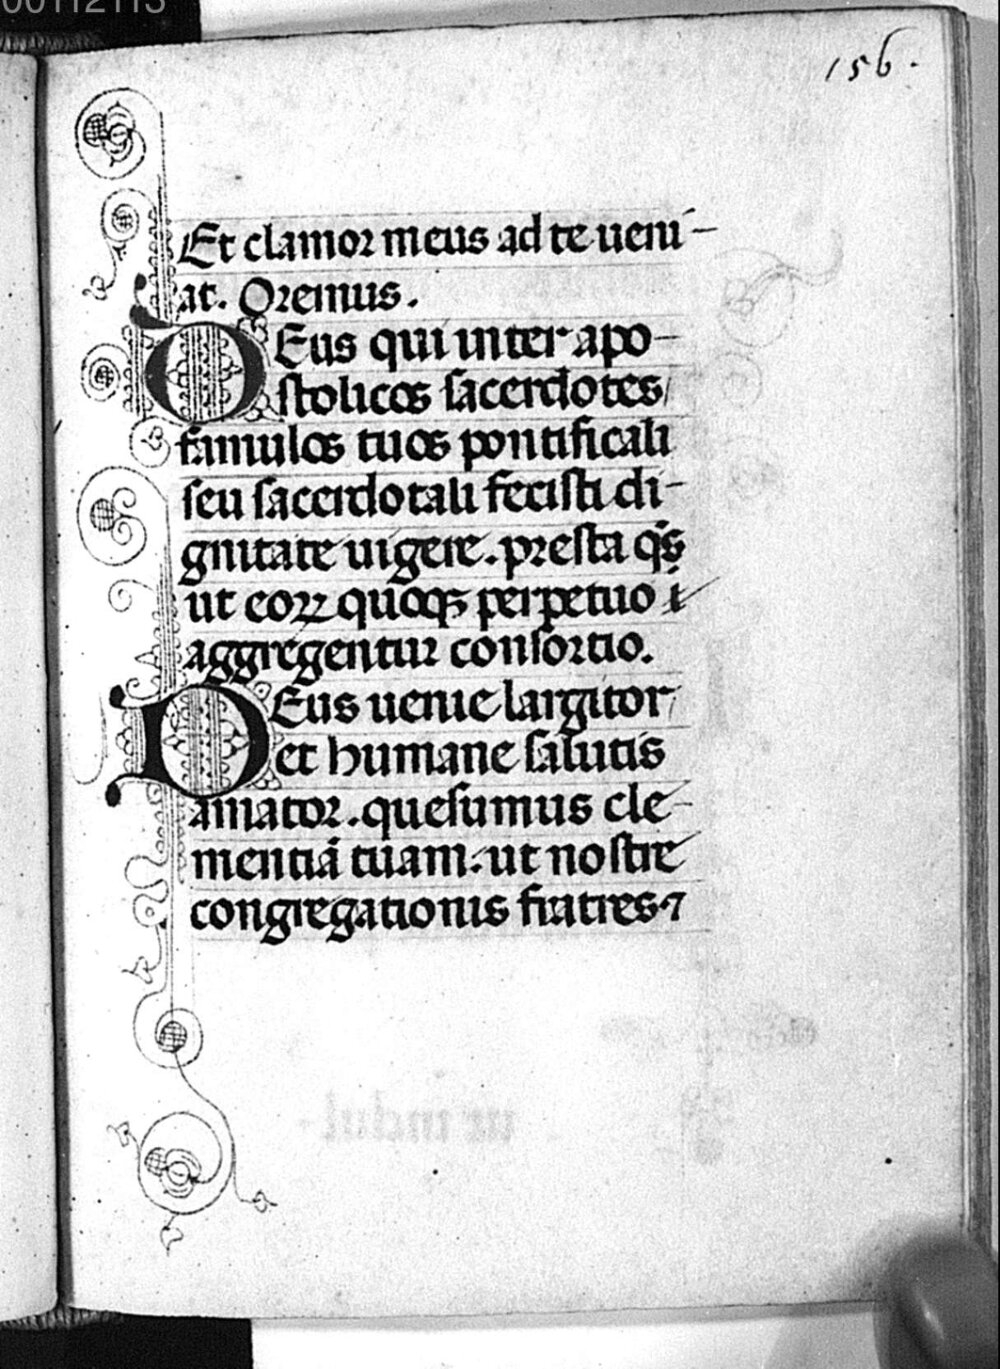 00112113
156.
Et clamor meus ad te ueni-
at. Oremus.
Deus qui inter apo-
stolicos sacerdotes
famulos tuos pontificali
seu sacerdotali fecisti di-
gnitate uigere. presta qs̄
ut eoꝝ quoqꝫ perpetuo i
aggregentur consortio.
Deus uenie largitor
et humane salutis
amator. quesumus cle-
mentiā tuam. ut nostre
congregationis fratres ⁊